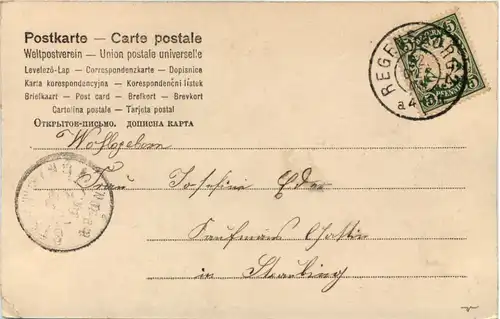 Postkarte — Carte postale
Weltpostverein — Union postale universelle
Levelező-Lap — Correspondenzkarte — Dopisnice
Karta korespondencyjna — Korespondenční lístek
Briefkaart — Post card — Brefkort — Brevkort
Cartolina postale — Tarjeta postal
Открытое-письмо. дописна карта
REGENSBURG
5 5
PFENNIG
Wohlgeborn
Frau Josefine Eder
Kaufmans Gattin
in Straubing